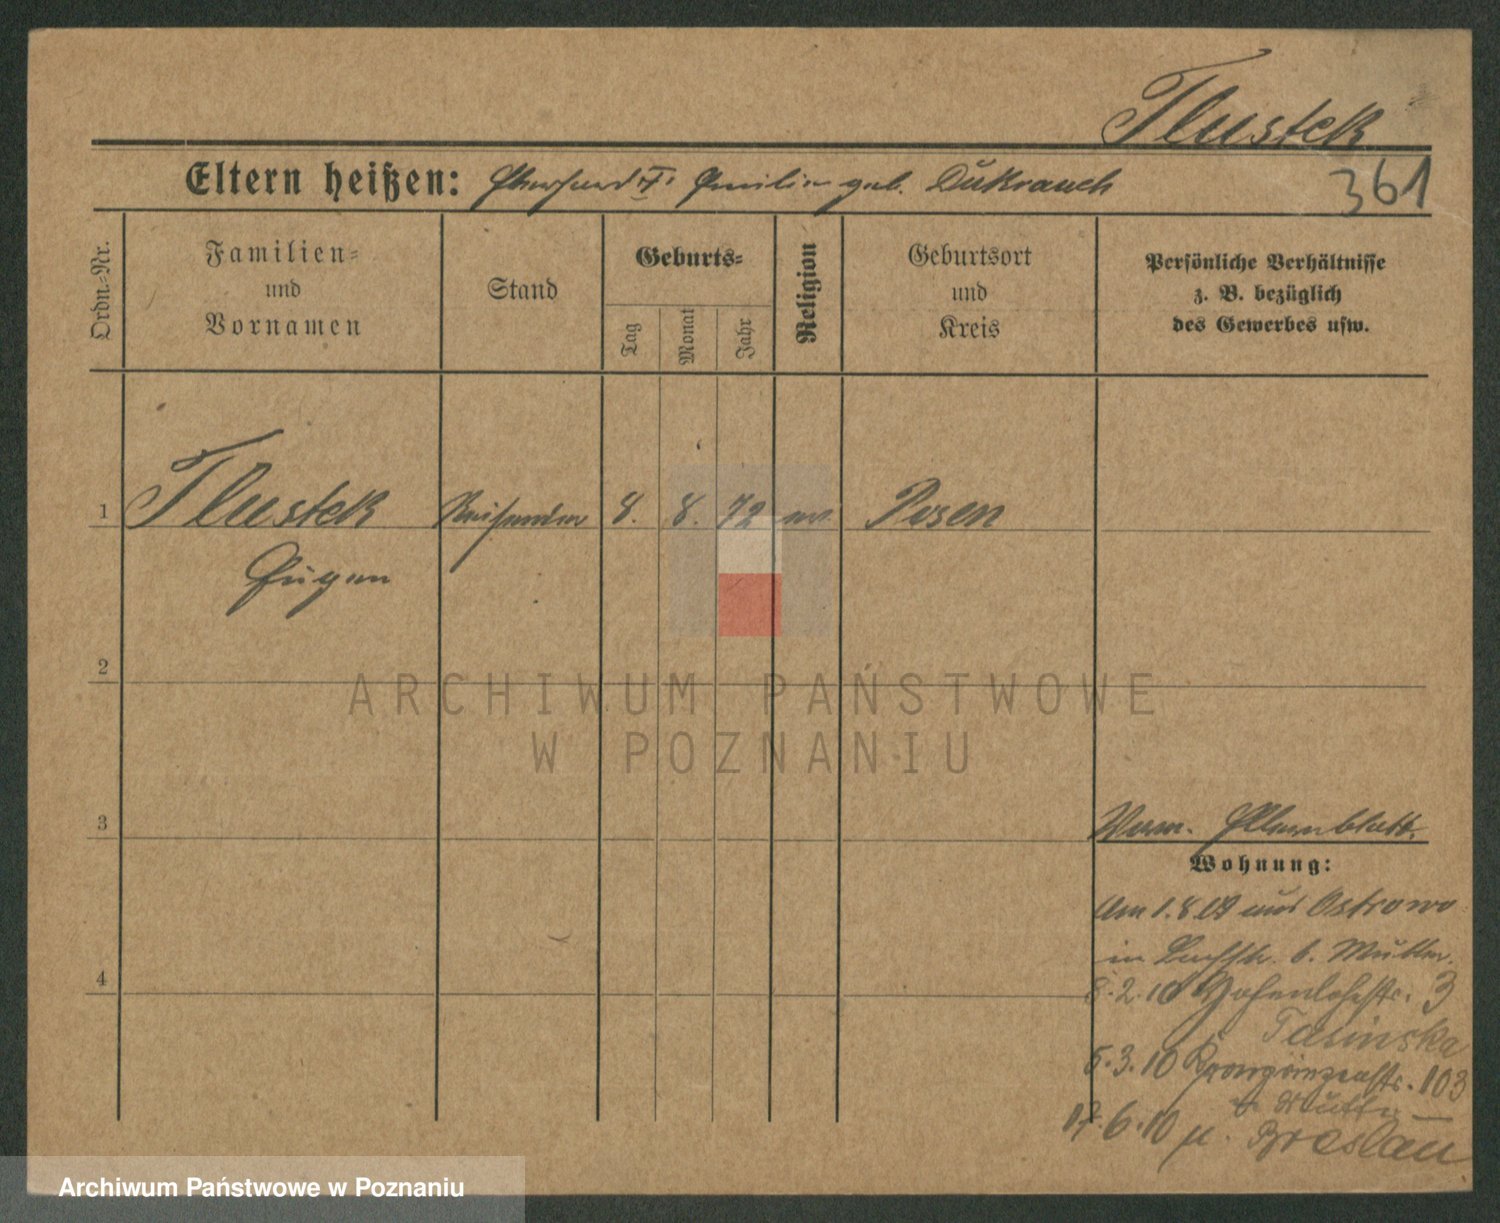 Tlustek
Eltern heißen: Eberhard † Emilie geb. Dukrauch
361
Ordn.-Nr.
Familien-
und
Vornamen
Stand
Geburts-
Tag
Monat
Jahr
Religion
Geburtsort
und
Kreis
Persönliche Verhältnisse
z. B. bezüglich
des Gewerbes usw.
1 Tlustek Reisender 8. 8. 72 Posen
Eugen
2
3
4
ARCHIWUM PAŃSTWOWE
W POZNANIU
Elternblatt.
Wohnung:
Am 1.8 aus Ostrowo
in b. Mutter.
8.2.10 Hohenlohestr. 3
Tasinska
5.3.10 Kronprinzenstr. 103
Mutter
17.6.10 Breslau
Archiwum Państwowe w Poznaniu